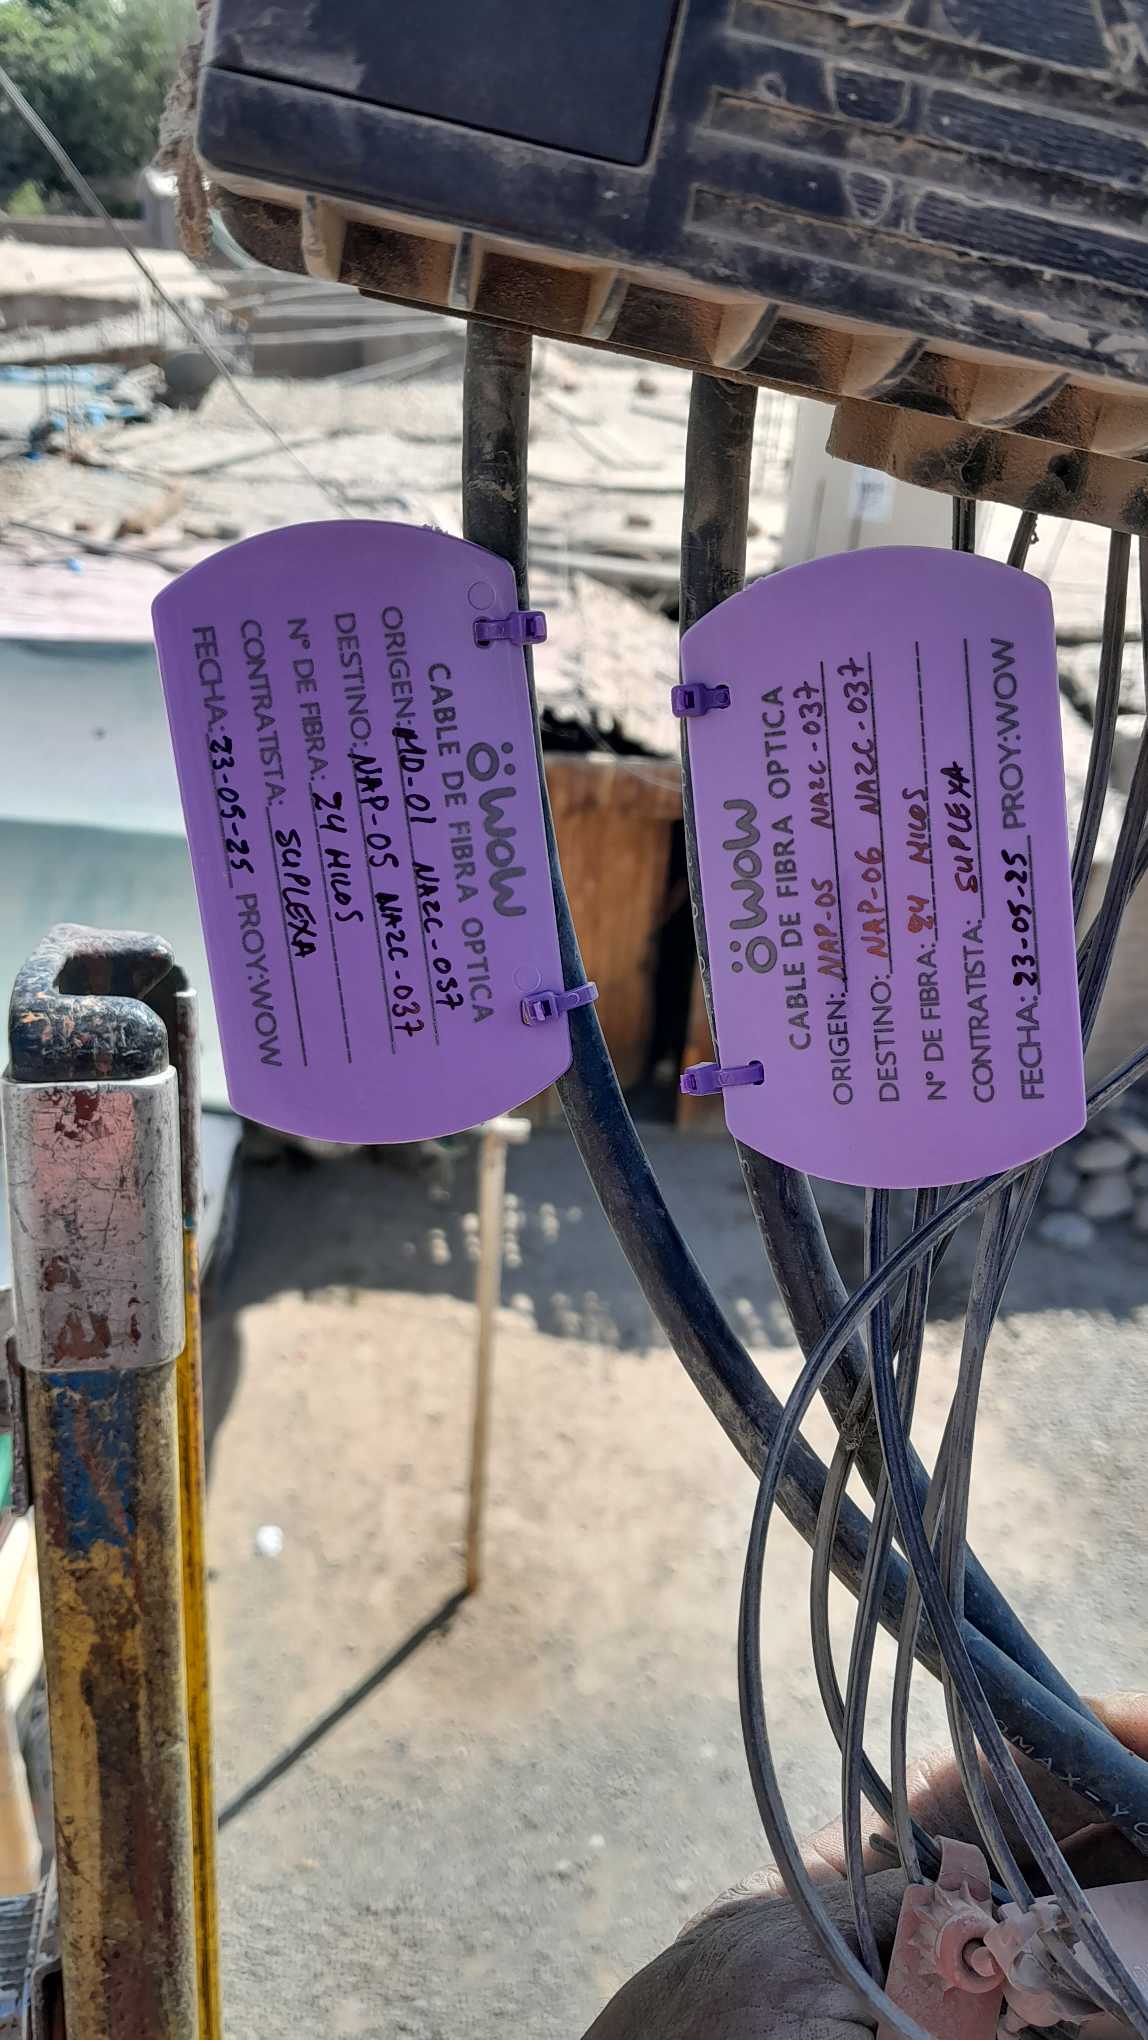 WOW
CABLE DE FIBRA OPTICA
ORIGEN: MD-01 NA2C-037
DESTINO: NAP-05 NA2C-037
N° DE FIBRA: 24 HILOS
CONTRATISTA: SUPLEXA
FECHA: 23-05-25 PROY:WOW
WOW
CABLE DE FIBRA OPTICA
ORIGEN: NAP-05 NA2C-037
DESTINO: NAP-06 NA2C-037
N° DE FIBRA: 24 HILOS
CONTRATISTA: SUPLEXA
FECHA: 23-05-25 PROY:WOW